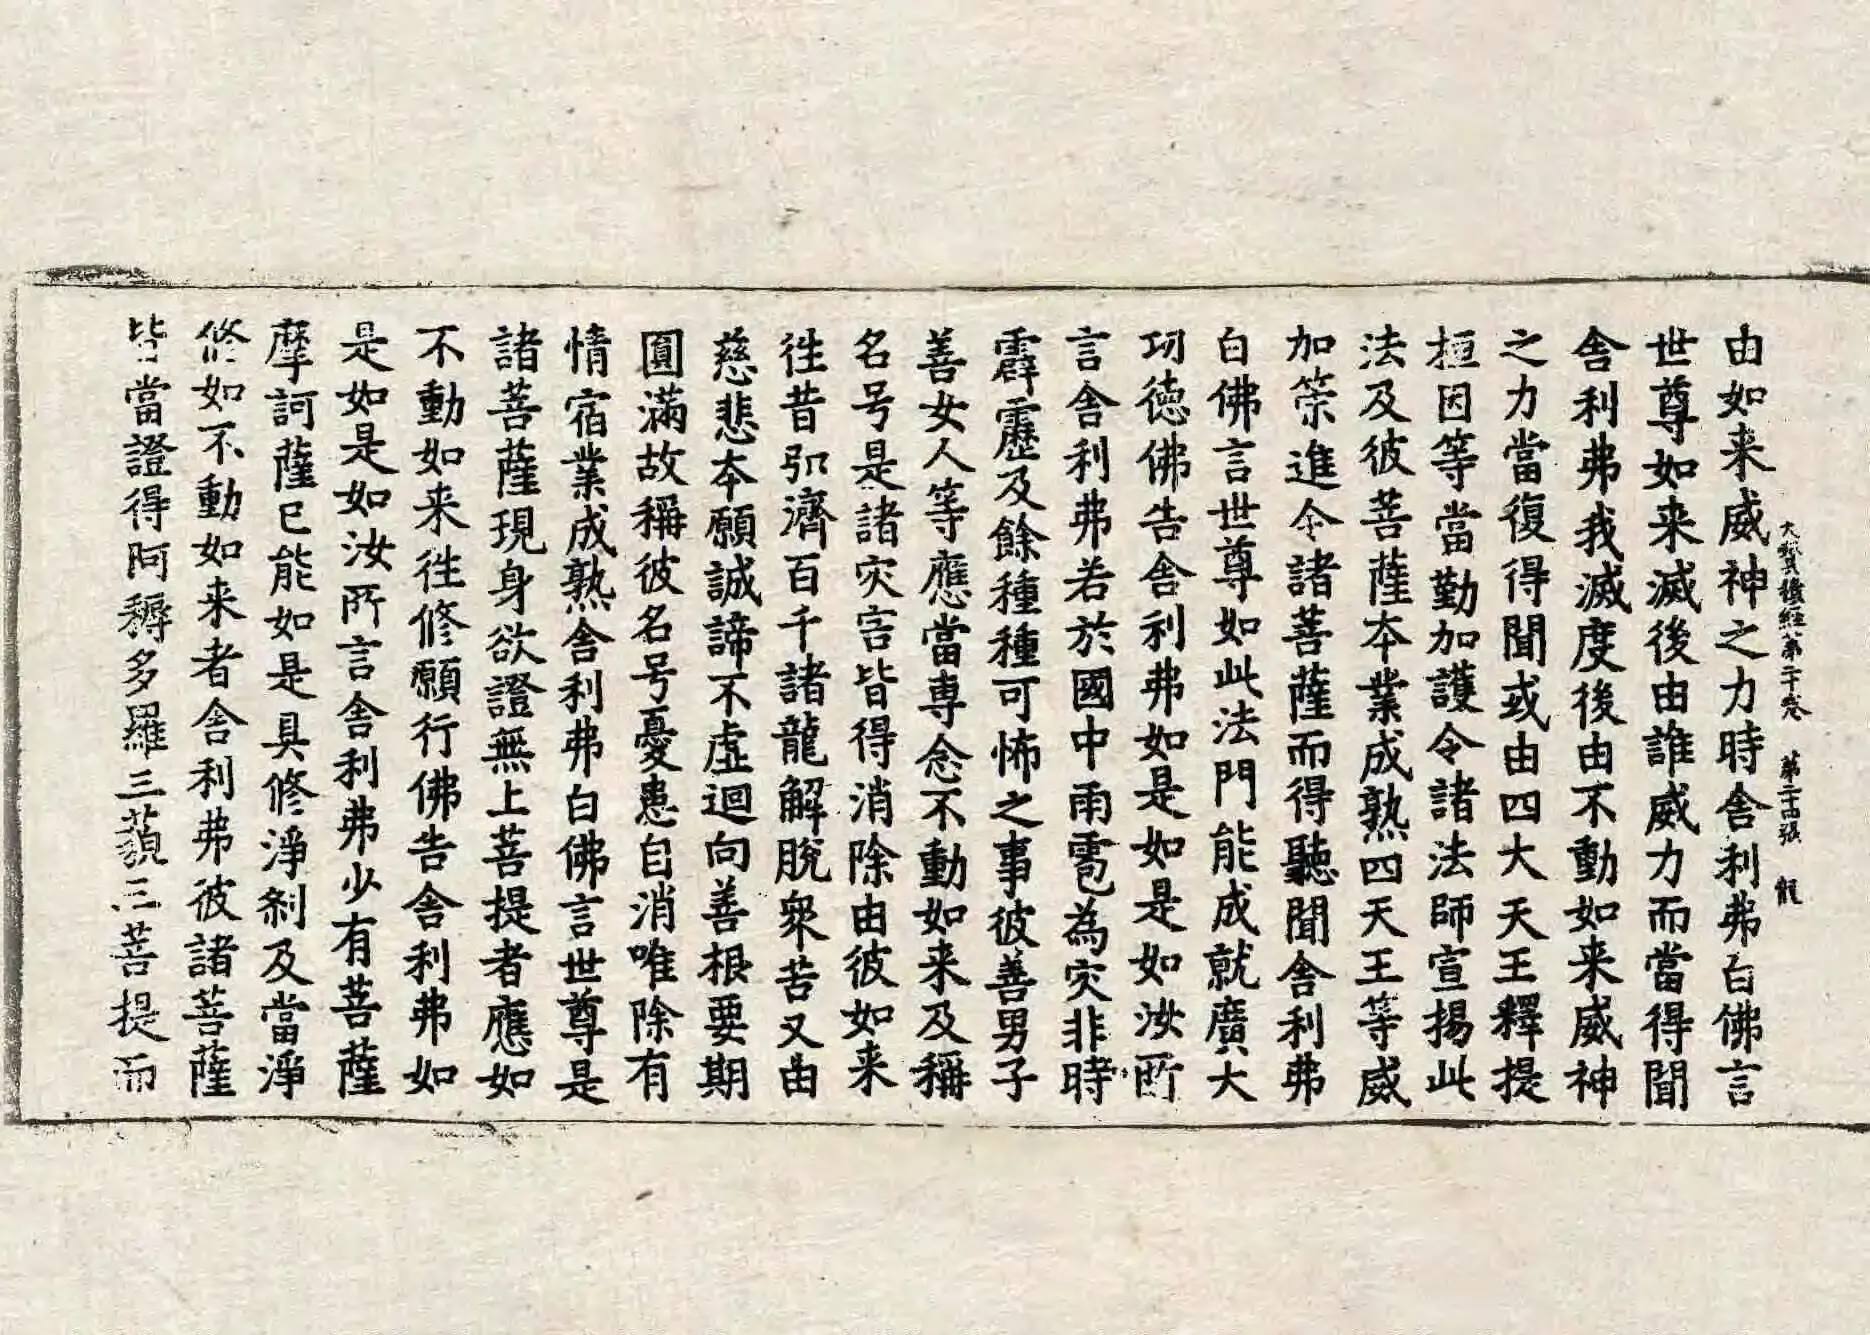 大寶積經第二十卷　第二十四張　龍
由如来威神之力時舍利弗白佛言
世尊如来滅後由誰威力而當得聞
舍利弗我滅度後由不動如来威神
之力當復得聞或由四大天王釋提
桓因等當勤加護令諸法師宣揚此
法及彼菩薩本業成熟四天王等威
加策進令諸菩薩而得聽聞舍利弗
白佛言世尊如此法門能成就廣大
功德佛告舍利弗如是如是如汝所
言舍利弗若於國中雨雹為灾非時
霹靂及餘種種可怖之事彼善男子
善女人等應當専念不動如来及稱
名号是諸灾害皆得消除由彼如来
往昔引濟百千諸龍解脫衆苦又由
慈悲本願誠諦不虛迴向善根要期
圓滿故稱彼名号憂患自消唯除有
情宿業成熟舍利弗白佛言世尊是
諸菩薩現身欲證無上菩提者應如
不動如来往修願行佛告舍利弗如
是如是如汝所言舍利弗少有菩薩
摩訶薩已能如是具修淨剎及當淨
修如不動如来者舍利弗彼諸菩薩
皆當證得阿耨多羅三藐三菩提而